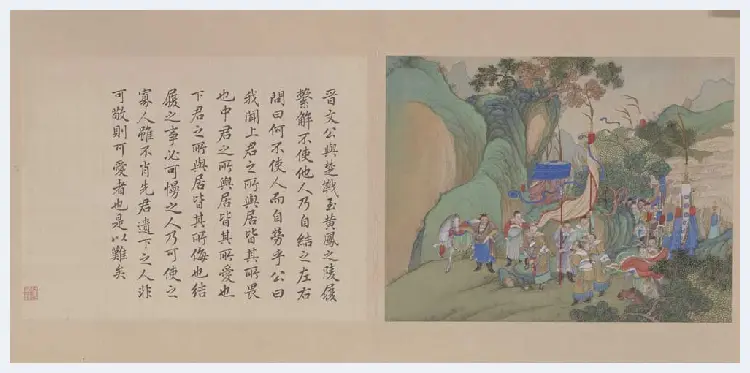 晉文公與楚戰至黃鳳之陵履
繫解不使他人乃自結之左右
問曰何不使人而自勞乎公曰
我聞上君之所與居皆其所畏
也中君之所與居皆其所愛也
下君之所與居皆其所侮也結
履之事必可惕之人乃可使之
寡人雖不肖先君遺下之人非
可敬則可愛者也是以難矣